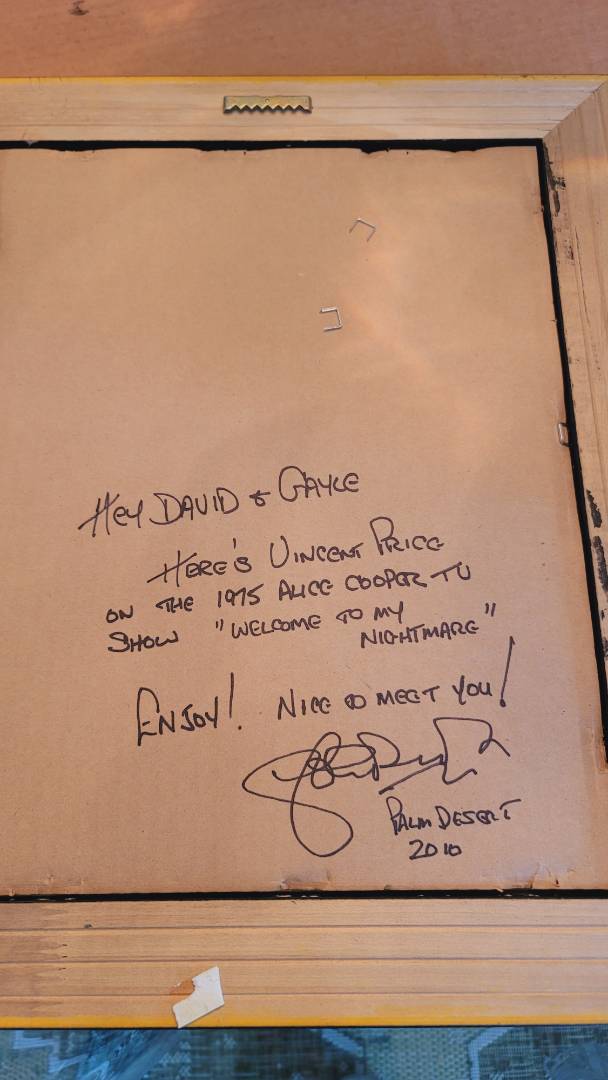 HEY DAVID & GAYLE
HERE'S VINCENT PRICE
ON THE 1975 ALICE COOPER TV
SHOW "WELCOME TO MY
NIGHTMARE"
ENJOY! NICE TO MEET YOU!
PALM DESERT
2010